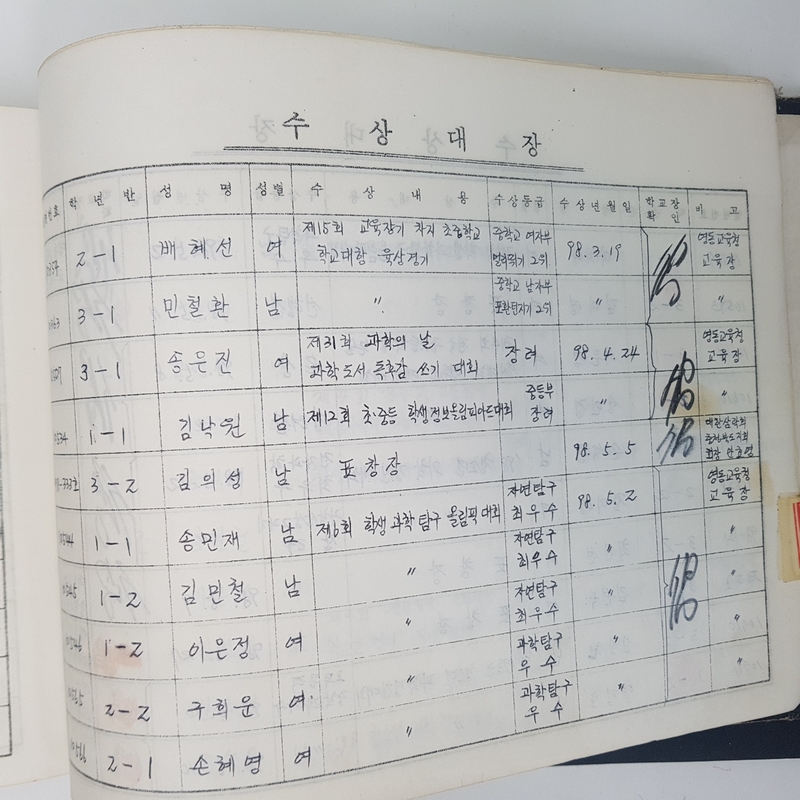 수 상 대 장
학 년 반 성 명 성별 수 상 내 용 수상등급 수 상 년 월 일 학교장 확인 비 고
2-1 배혜선 여 제15회 교육장기 차지 초중학교 학교대항 육상경기 중학교 여자부 멀리뛰기 2위 98.3.19 영동교육청 교육장
3-1 민철환 남 〃 중학교 남자부 포환던지기 2위 〃 〃
3-1 송은진 여 제31회 과학의 날 과학도서 독후감 쓰기 대회 장려 98.4.24 영동교육청 교육장
1-1 김낙원 남 제12회 초·중등 학생정보올림피아드대회 중등부 장려 〃 〃
3-2 김의성 남 표창장 98.5.5 충청북도지회
1-1 송민재 남 제6회 학생과학탐구 올림픽대회 자연탐구 최우수 98.5.2 영동교육청 교육장
1-2 김민철 남 〃 자연탐구 최우수 〃 〃
1-2 이은정 여 〃 자연탐구 최우수 〃 〃
2-2 구희운 여 〃 과학탐구 우수 〃 〃
2-1 손혜영 여 〃 과학탐구 우수 〃 〃